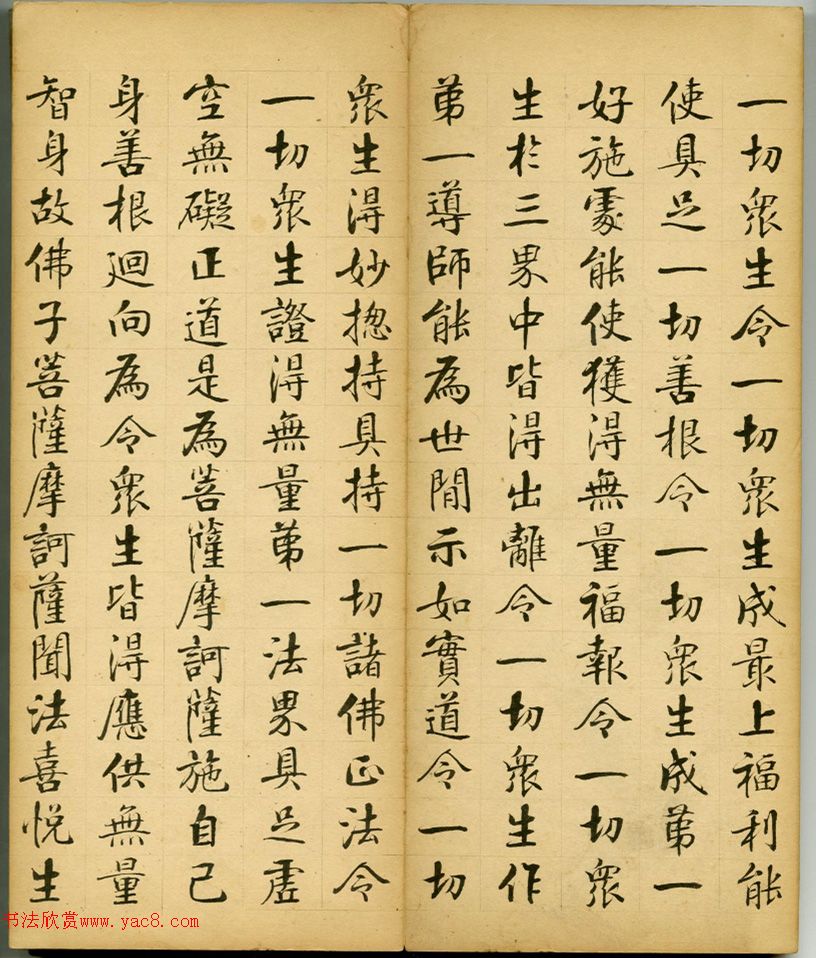 一切衆生令一切衆生成最上福利能
使具足一切善根令一切衆生成第一
好施處能使獲得無量福報令一切衆
生於三界中皆得出離令一切衆生作
第一導師能為世間示如實道令一切
衆生得妙揔持具持一切諸佛正法令
一切衆生證得無量第一法界具足虛
空無礙正道是為菩薩摩訶薩施自己
身善根迴向為令衆生皆得應供無量
智身故佛子菩薩摩訶薩聞法喜悅生
书法欣赏www.yac8.com